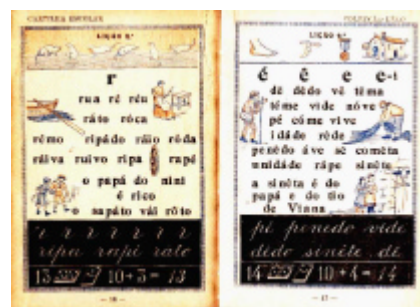 CARTILHA ESCOLAR
LIÇÃO 8.ª
r
rua ré réu
ráto róca
rêmo ripádo ráio róda
ráiva ruívo rípa rapé
o papá do niní
é ríco
o sapáto vái rôto
r r r r r r r
ripa rapé rato
13 10+3=13
LIÇÃO 9.ª
é ê e e-i
dê dêdo vê têma
tóme víde nóve
pé cóme víve
idáde rêde
penêdo áve sê cométa
unidáde rápe sinête
a sinêta é do
papá e do tío
de Viana
pé penedo vide
dêdo sinête dê
14 10+4=14